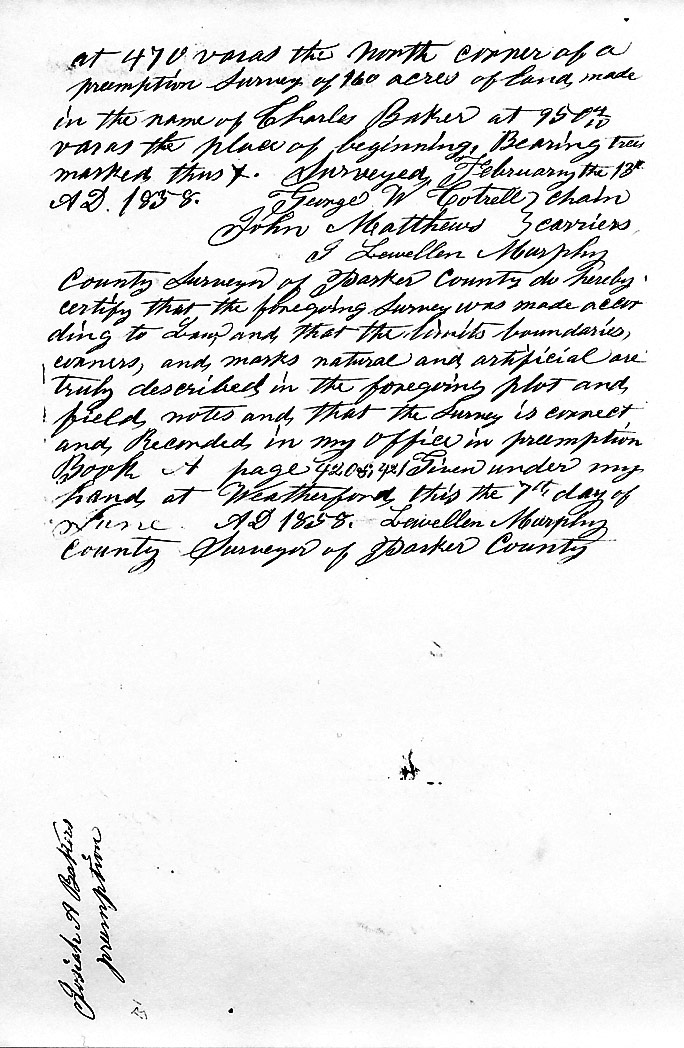 at 470 varas the North corner of a
preemption Survey of 160 acres of land made
in the name of Charles Baker at 950 4/10
varas the place of beginning. Bearing trees
marked thus X. Surveyed February the 13th
AD. 1858. George W Cotrell } chain
John Matthews } carriers
I Lewellen Murphy
County Surveyor of Parker County do hereby
certify that the foregoing Survey was made accor
ding to Law, and that the limits boundaries,
corners, and marks natural and artificial are
truly described in the foregoing plot and
field notes and that the Survey is correct
and Recorded in my office in preemption
Book A page 420 & 421 Given under my
hand at Weatherford this the 7th day of
June AD 1858. Lewellen Murphy
County Surveyor of Parker County
Josiah A Bakers
preemption